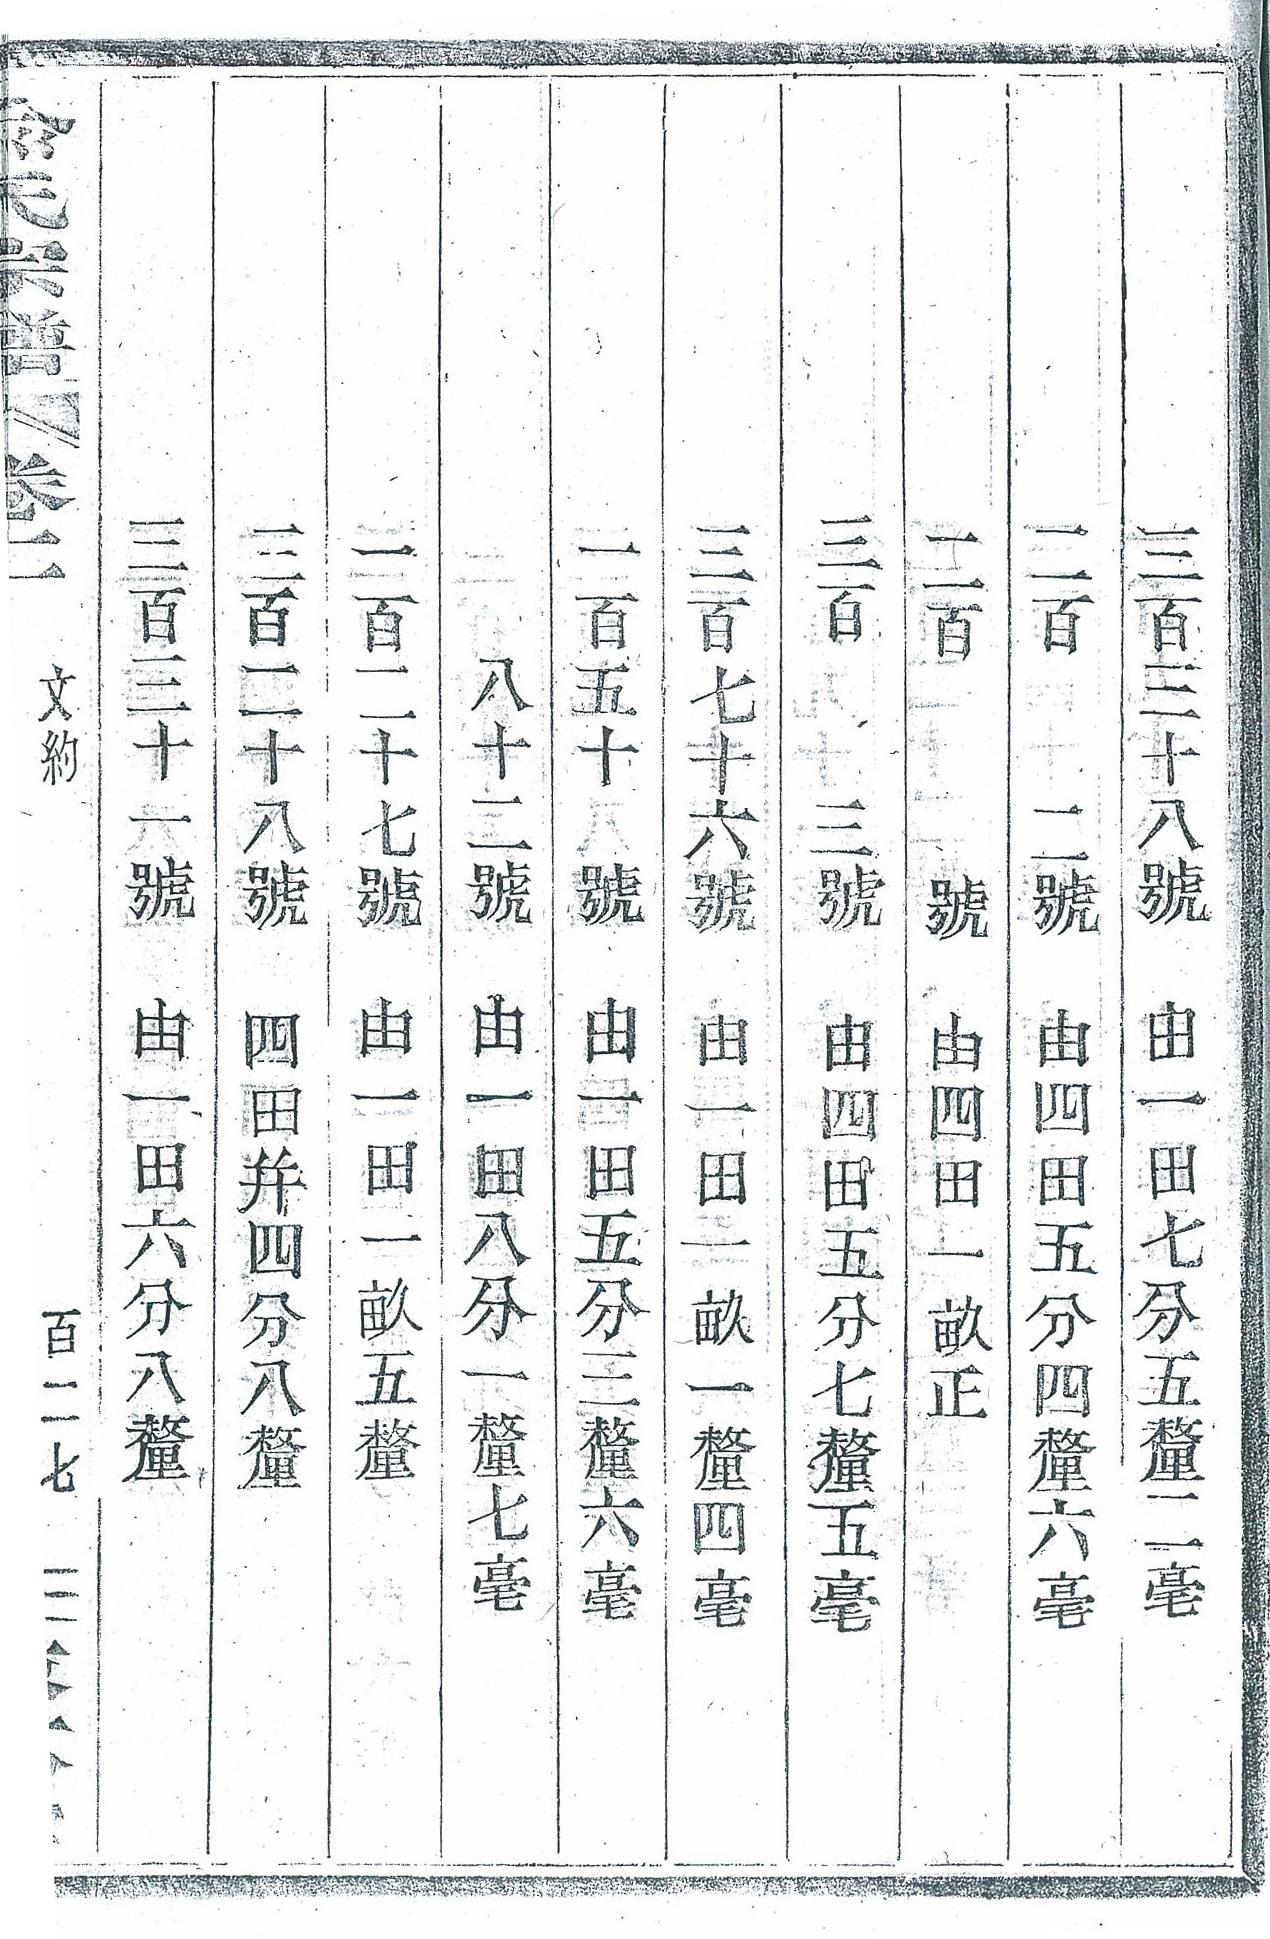 三百三十八號　由一田七分五釐二毫
二百　二號　由四田五分四釐六毫
二百　號　由四田一畝正
三百　三號　由四田五分七釐五毫
三百七十六號　由一田一畝一釐四毫
一百五十　號　由一田五分三釐六毫
八十二號　由一田八分一釐七毫
一百二十七號　由一田一畝五釐
三百二十八號　四田并四分八釐
三百三十一號　由一田六分八釐
普　卷二　文約　百二七